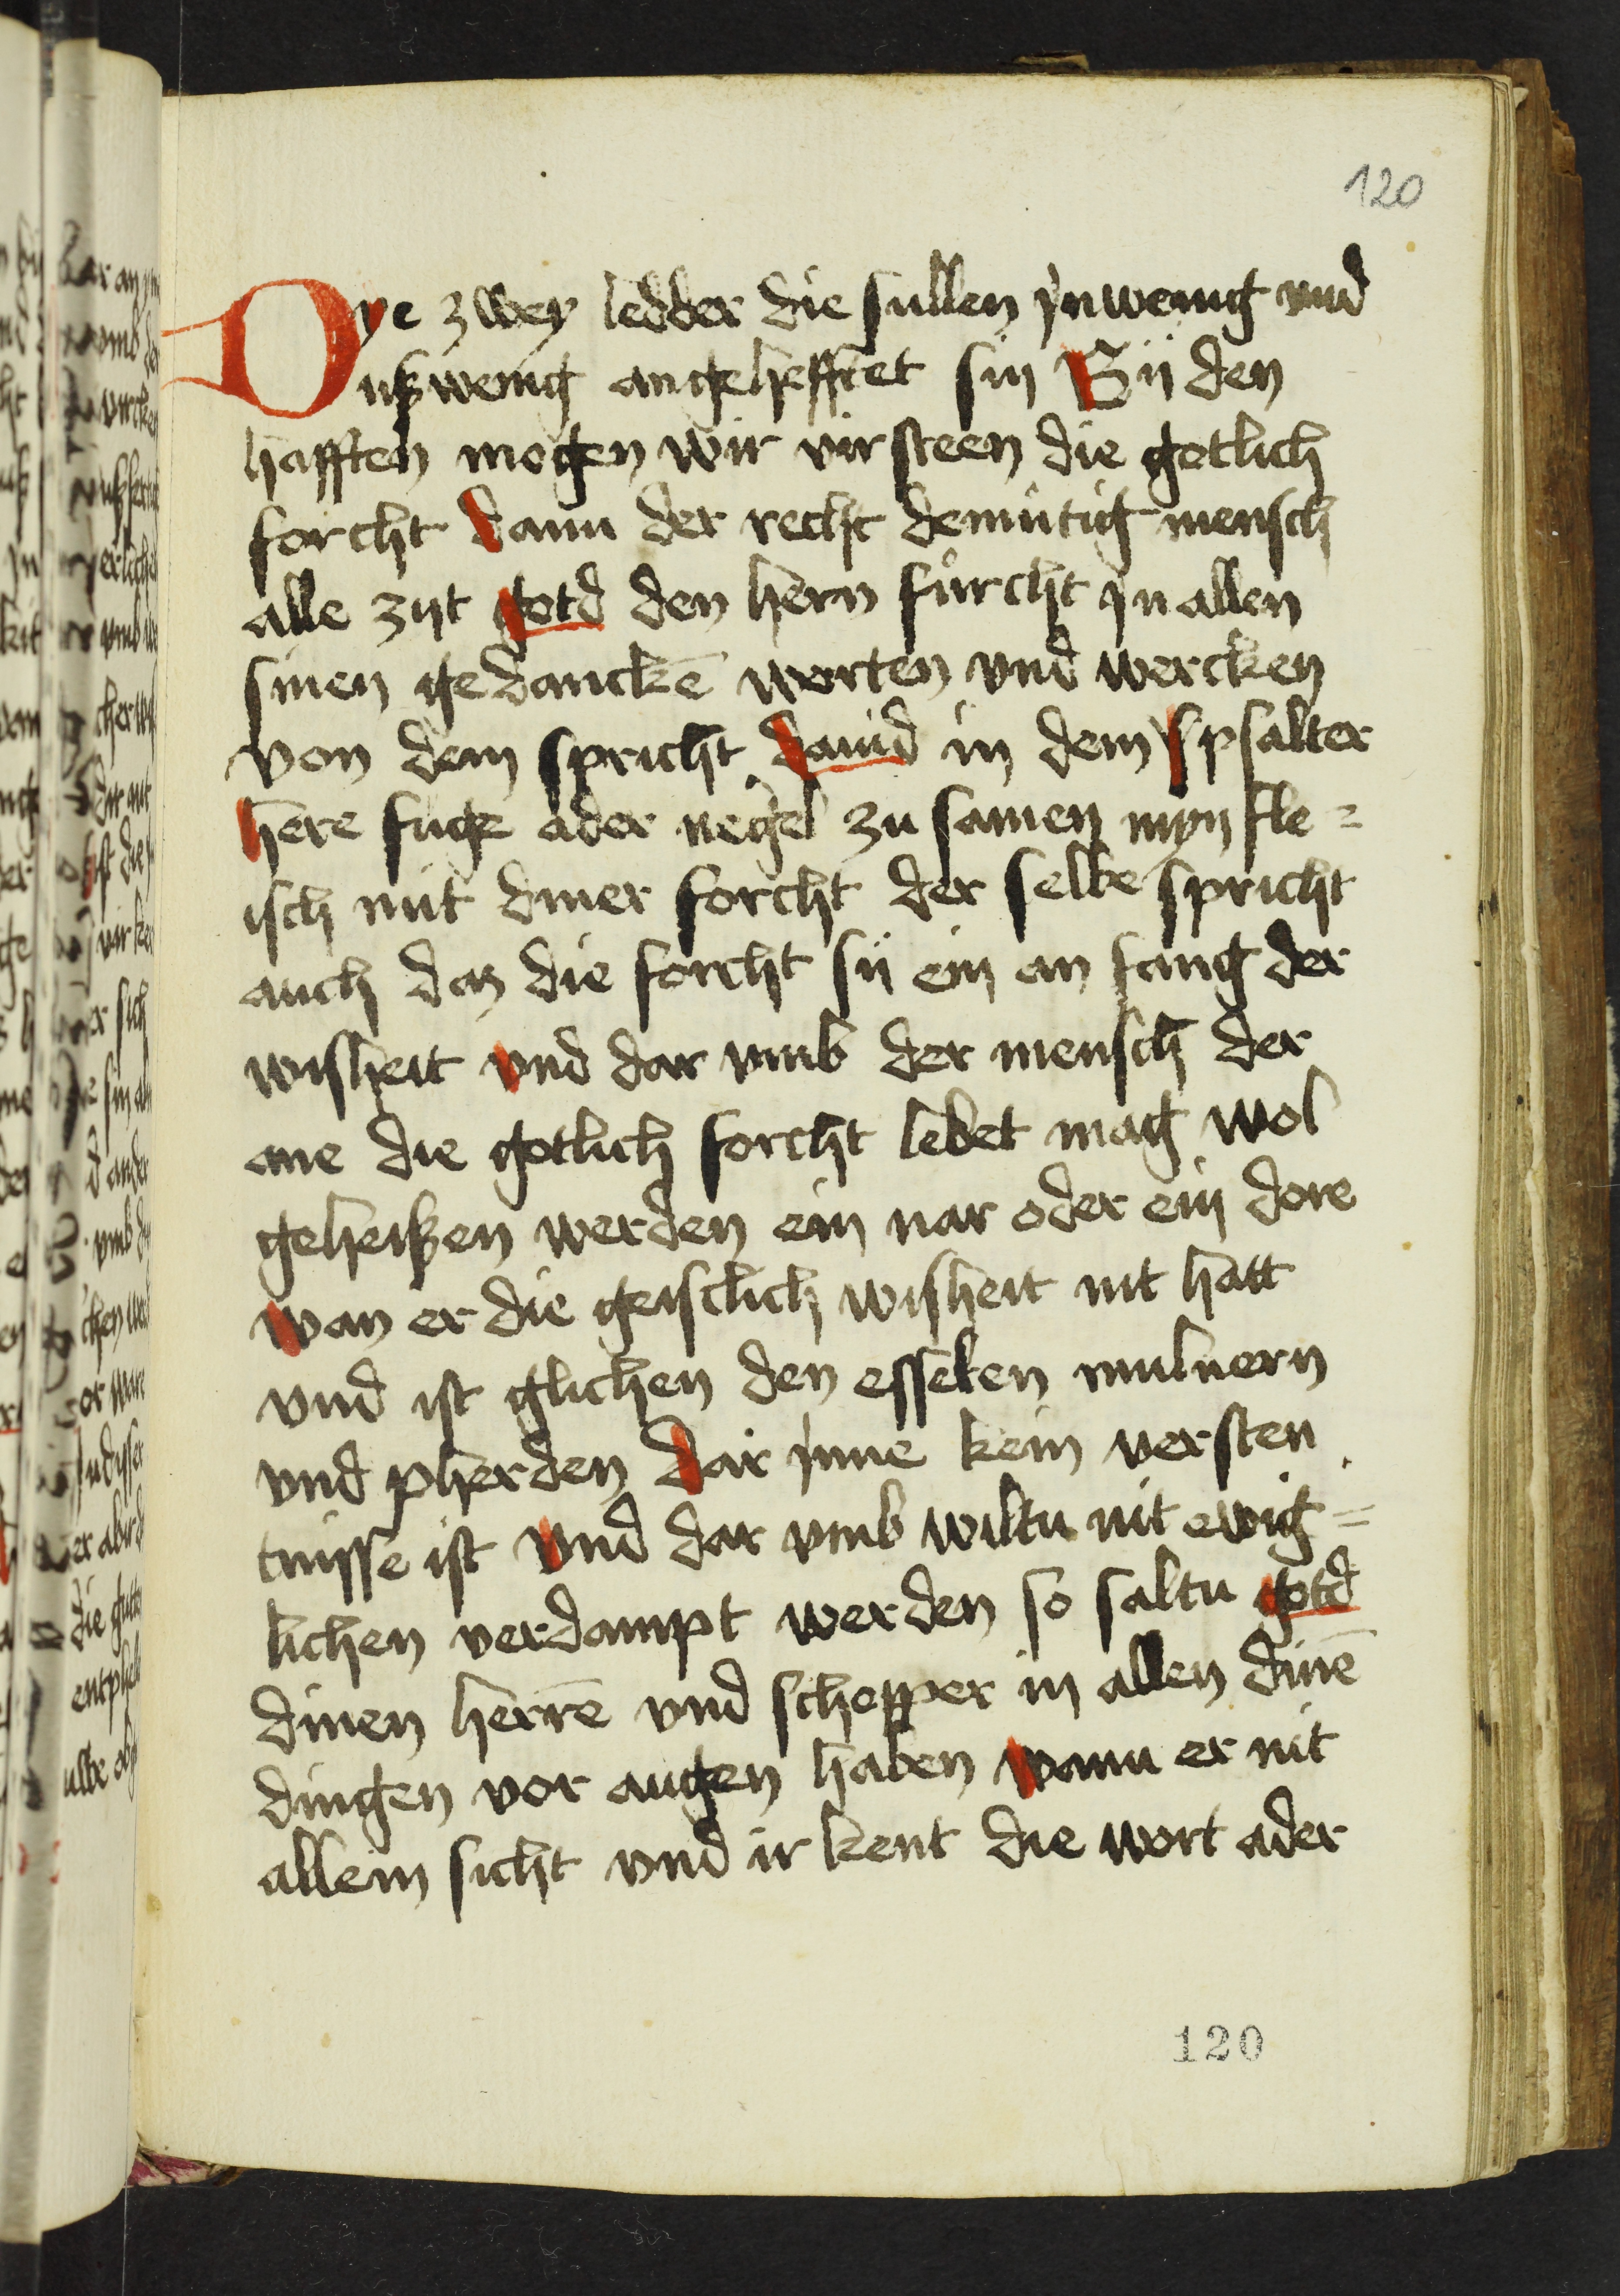 120
Dye zwey ledder die sullen jnwenig vnd
ußwenig angehefftet sin Bij den
hafften mogen wir virsteen die gotlich
forcht dann der recht demutig mensch
alle zijt gotd den hern fůrcht jn allen
sinen gedanckē worten vnd wercken
von dem spricht dauid in dem spsalter
here fuge ader negel zu samen myn fle=
isch mit diner forcht der selbe spricht
auch daz die forcht sij ein an fang der
wisheit vnd dar vmb der mensch der
ane die gotlich forcht lebet mag wol
geheißen werden ein nar oder ein dore
wan er die geistlich wisheit nit hatt
vnd ist glichen den esselen mulnern
vnd pherden dar jnne kein versten
tnisse ist vnd dar vmb wiltu nit ewig=
lichen verdampt werden so saltu gotd
dinen herrē vnd schepper in allen dinē
dingen vor augen haben wann er nit
allein sicht vnd ir kent die wort ader
120